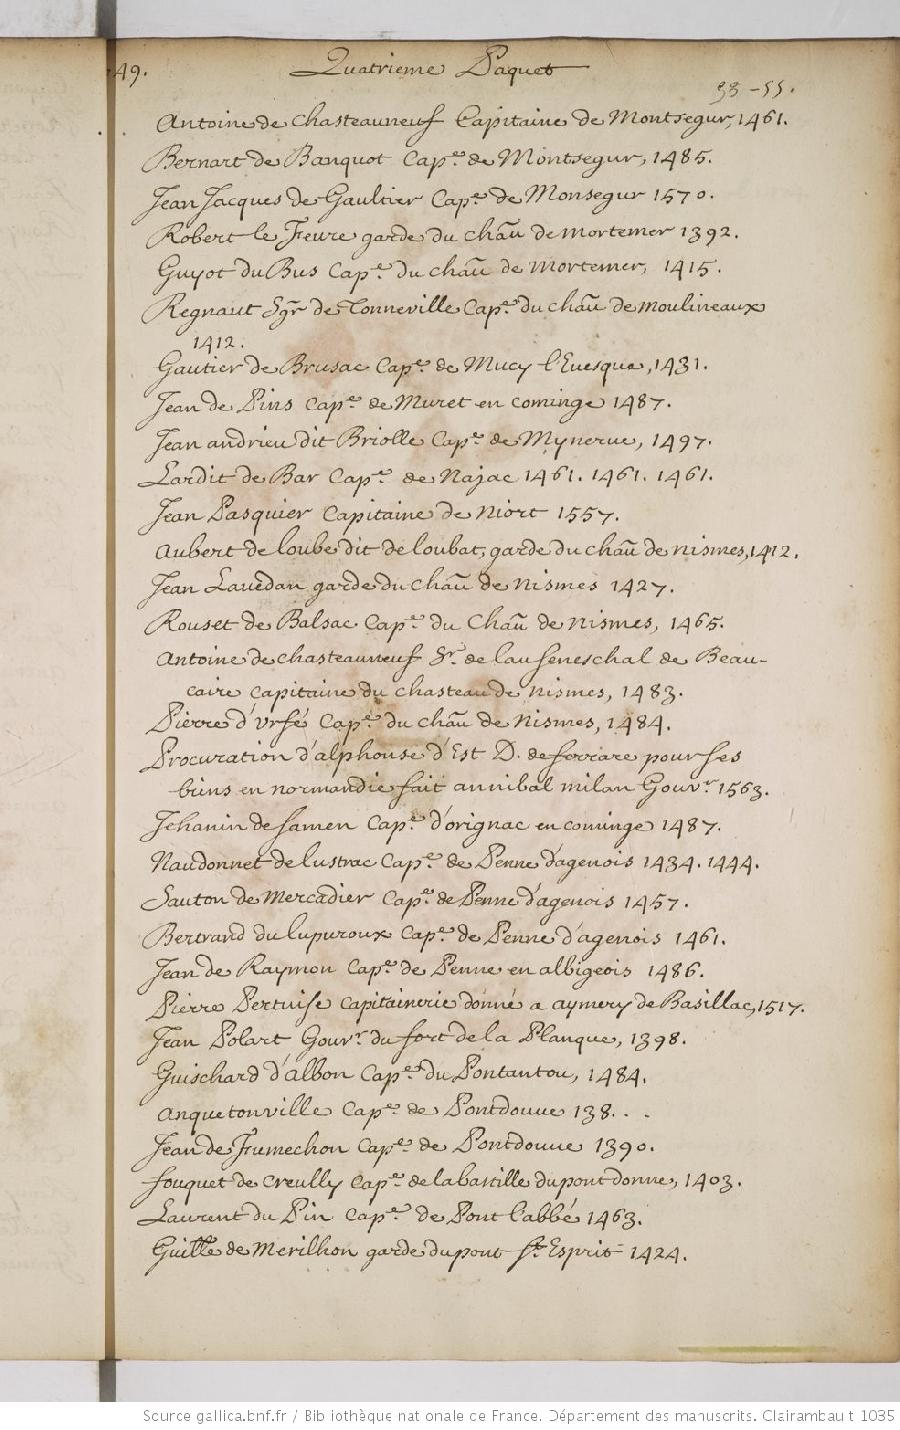 49.
Quatrieme Paquet
53-55.
Antoine de Chasteauneuf Capitaine de Montsegur, 1461.
Bernart de Banquot Cap.e de Montsegur, 1485.
Jean Jacques de Gaultier Cap.e de Monsegur 1570.
Robert le Fevre garde du chãu de mortemer 1392.
Guyot du Bus Cap.e du chãu de mortemer, 1415.
Regnaut Sgr de Tonneville Cap.e du chãu de moulineaux
1412.
Gautier de Brusac Cap.e de Mucy l'Evesque, 1431.
Jean de Pins Cap.e de Muret en cominge 1487.
Jean andrieu dit Briolle Cap.e de Mynerve, 1497.
Lardit de Bar Cap.e de Najac 1461. 1461. 1461.
Jean Pasquier Capitaine de Niort 1557.
Aubert de loube dit de loubat, garde du chãu de nismes, 1412.
Jean Lavedan garde du chãu de nismes 1427.
Rouset de Balsac Cap.e du Chãu de nismes, 1465.
Antoine de chasteauneuf Sr. de lau seneschal de Beau-
caire capitaine du chasteau de nismes, 1483.
Pierre d'Urfé Cap.e du chãu de Nismes, 1484.
Procuration d'alphonse d'Est D. de ferrare pour ses
biens en normandie fait annibal milan Gouvr. 1563.
Jehanin de samen Cap.e d'orignac en cominge 1487.
Naudonnet de lustrac Cap.e de Penne d'agenois 1434. 1444.
Sauton de Mercadier Cap.e de Penne d'agenois 1457.
Bertrand du lupuroux Cap.e de Penne d'agenois 1461.
Jean de Raymon Cap.e de Penne en albigeois 1486.
Pierre Pertuise capitainerie donné a aymery de Basillac, 1517.
Jean Polart Gouvr. du fort de la Planque, 1398.
Guischard d'albon Cap.e du Pontantou, 1484.
Anquetonville Cap.e de Pontdouve 138. . .
Jean de Frumechon Cap.e de Pontdouve 1390.
fouquet de Creully Cap.e de la bastille du pont donne, 1403.
Laurent du Pin Cap.e de Pont l'abbé 1463.
Guille de Merilhon garde du pont St. Esprit 1424.
Source gallica.bnf.fr / Bibliothèque nationale de France. Département des manuscrits. Clairambault 1035